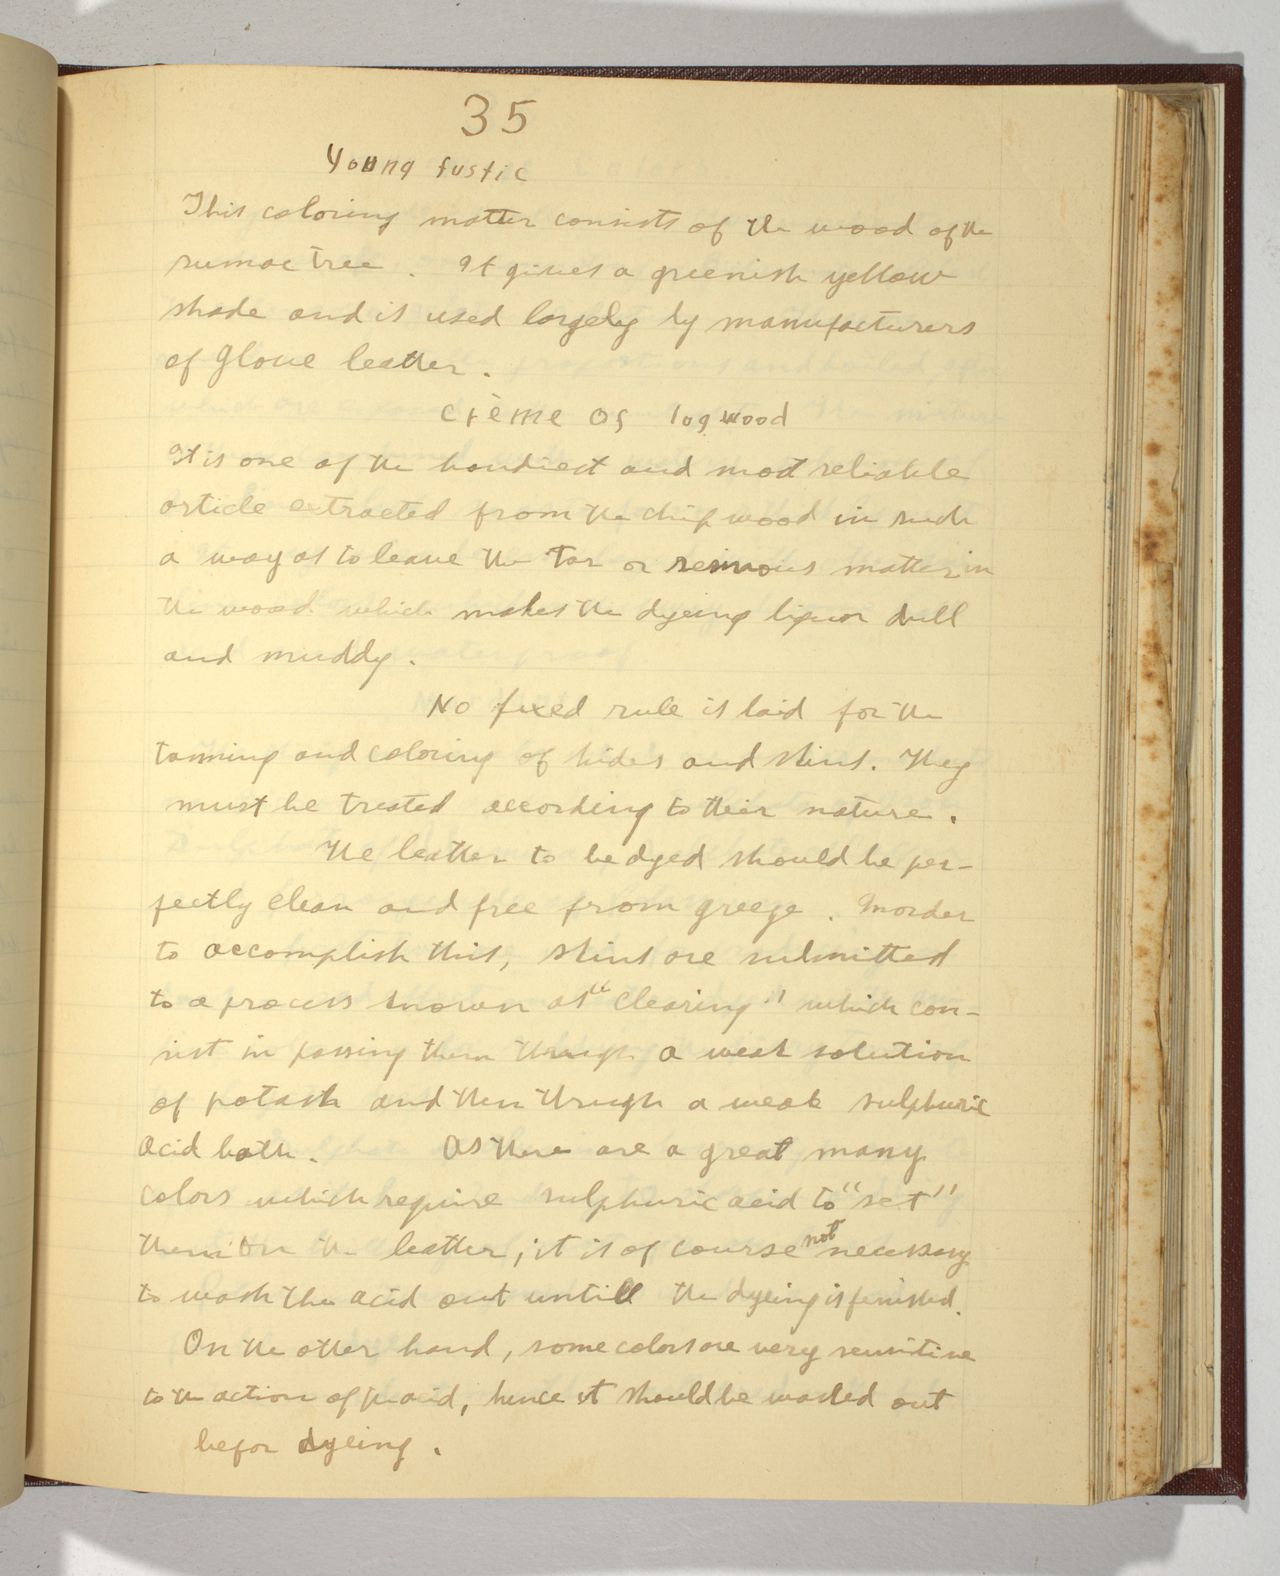 35
Young fustic
This coloring matter consists of the wood of the
sumac tree. It gives a greenish yellow
shade and is used largely by manufacturers
of glove leather.
Crème of logwood
It is one of the handiest and most reliable
article extracted from the chip wood in such
a way as to leave the tar or resinous matter in
the wood which makes the dyeing liquor dull
and muddy.
No fixed rule is laid for the
tanning and coloring of hides and skins. They
must be treated according to their nature.
The leather to be dyed should be per-
fectly clean and free from greeze. In order
to accomplish this, skins are submitted
to a process known as "Clearing" which con-
sist in passing them through a weak solution
of potash and then through a weak sulphuric
acid bath. As there are a great many
colors which require sulphuric acid to "set"
them on the leather; it is of course not necessary
to wash the acid out untill the dyeing is finished.
On the other hand, some colors are very sensitive
to the action of the acid, hence it should be washed out
befor dyeing.